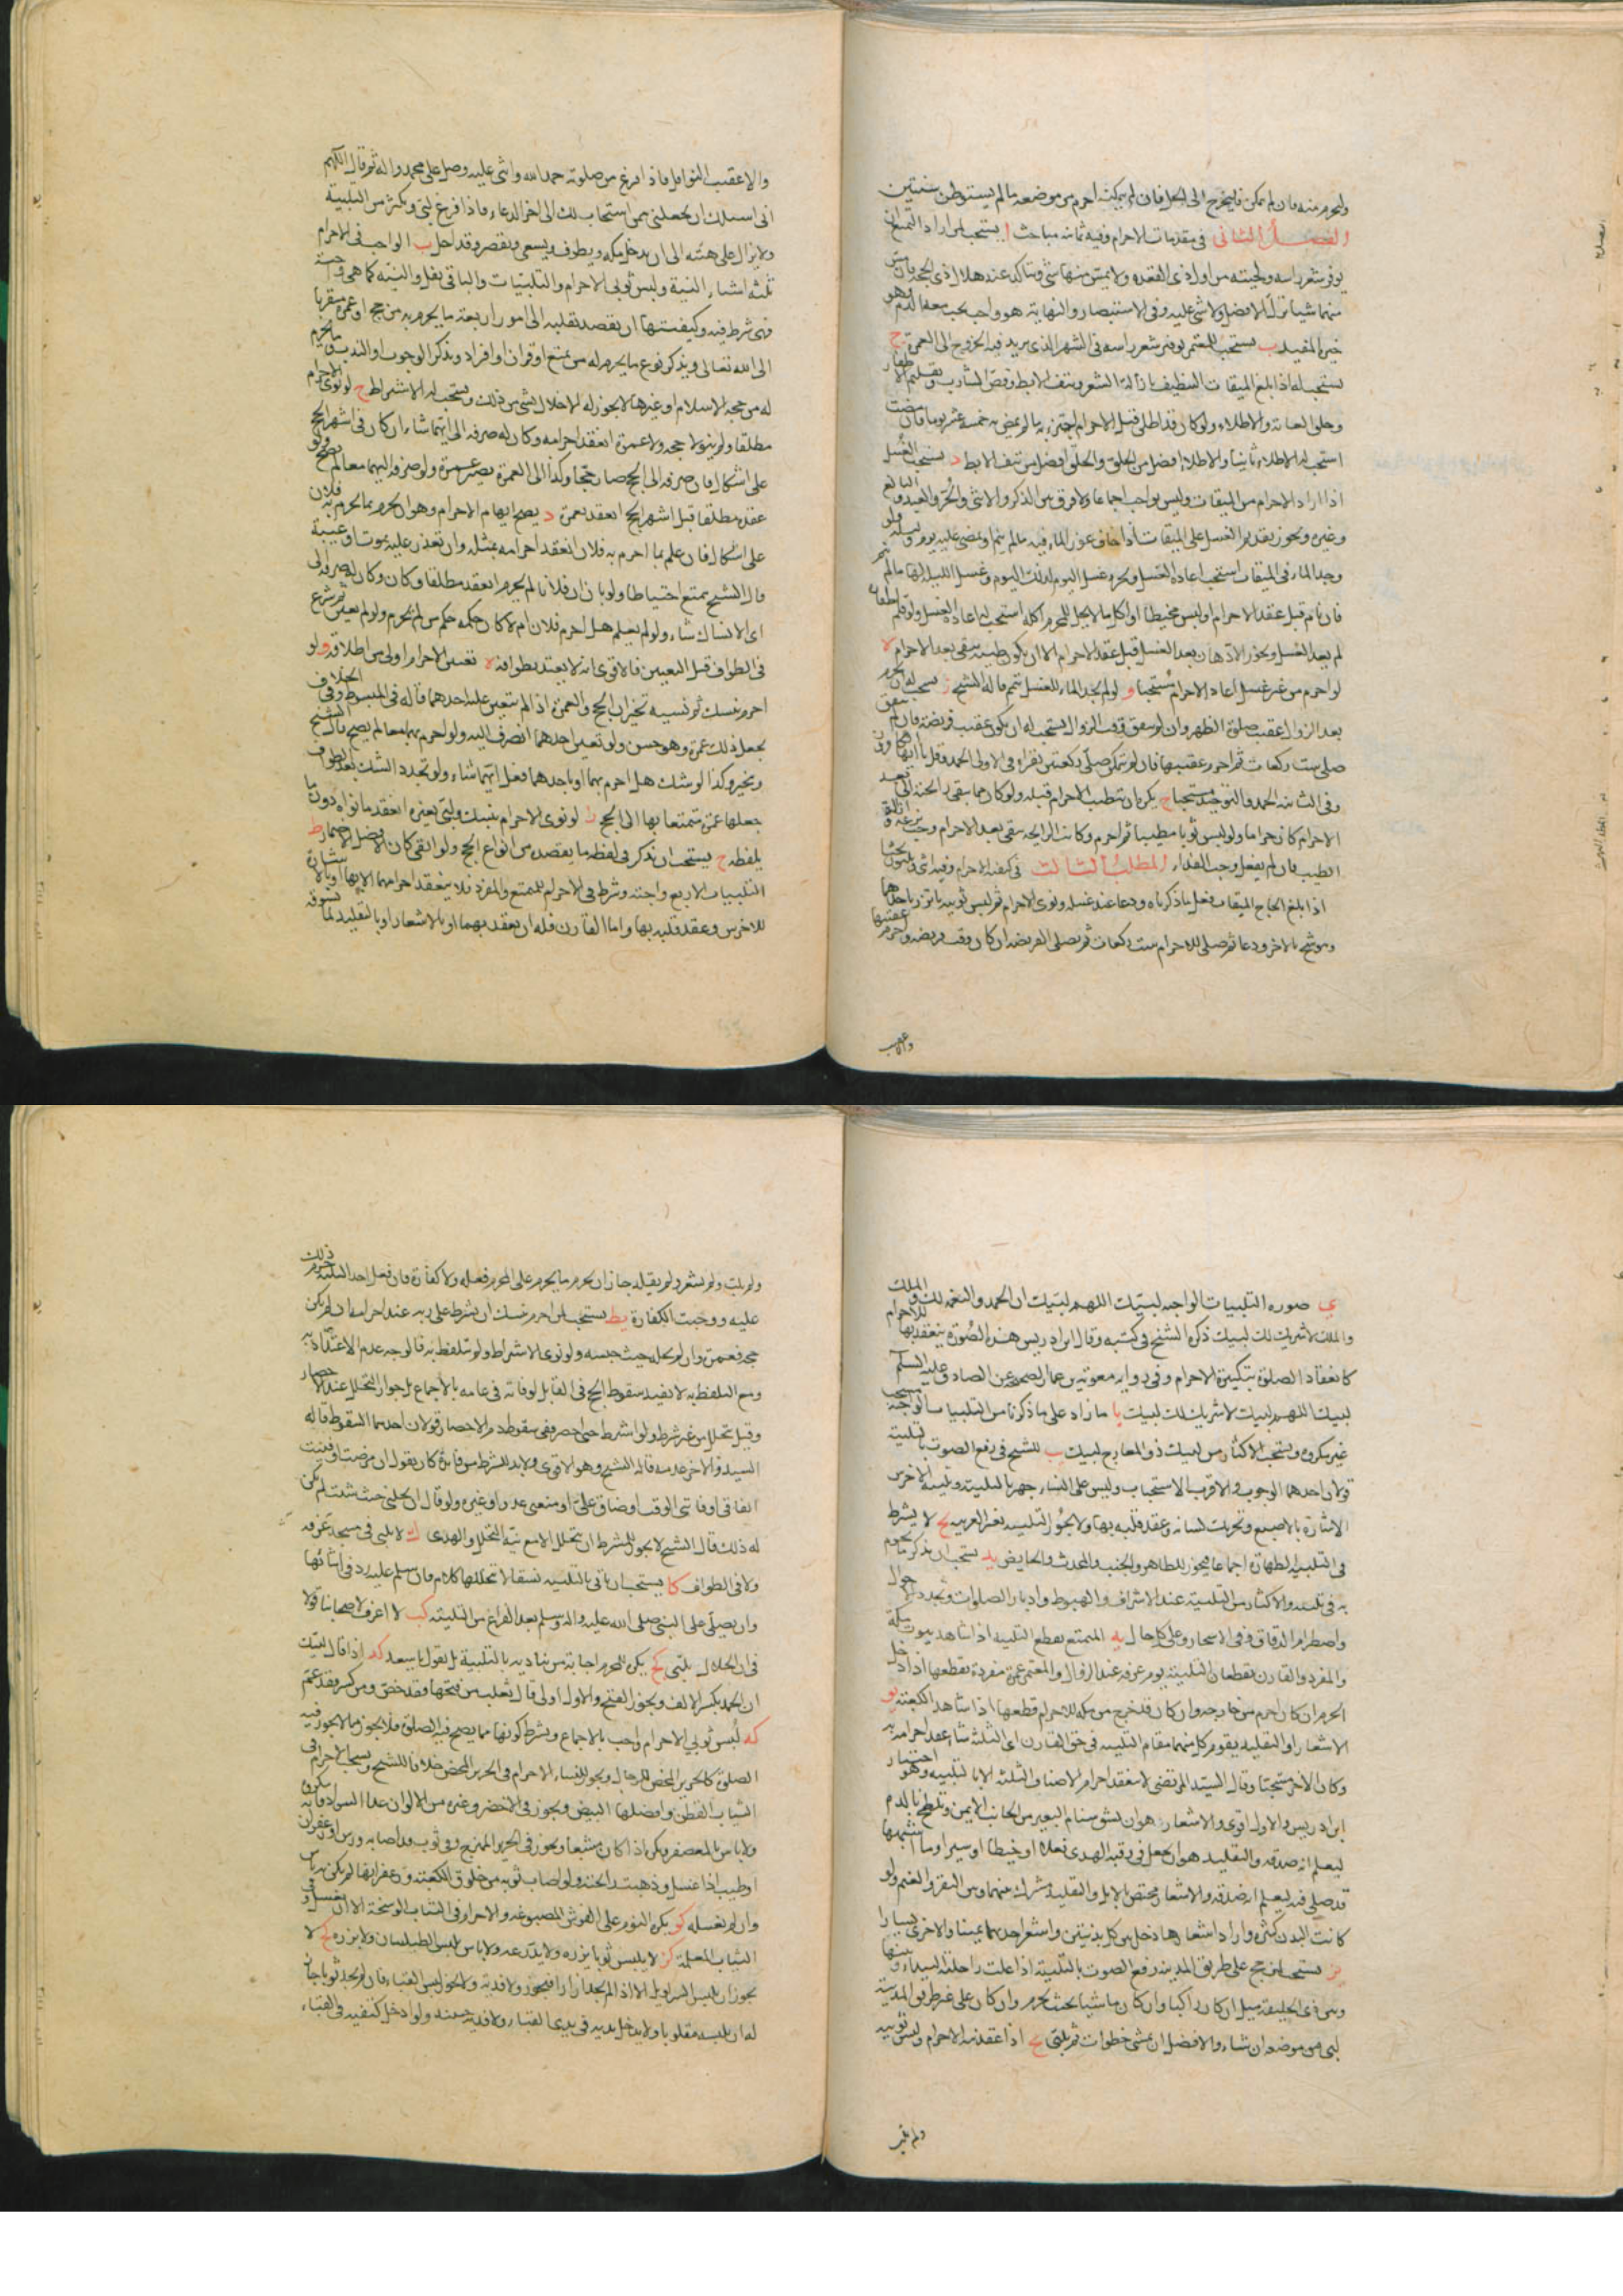 وليحرم منه فان لم يمكن فليخرج الى الحل فان لم يمكنه احرم من موضعه ما لم يستوطن سنتين
الفصل الثانى فى مقدمات الاحرام وفيه ثمانية مباحث ا يستحب لمن اراد التمتع
توفير شعر راسه ولحيته من اول ذى القعده ولا يمس منهما شئ ويتاكد عند هلال ذى الحجه فان مس
منهما شيئا ترك الافضل ولا شئ عليه وفى الاستبصار والنهاية هو واجب يجب معه الدم وهو
خيرة المفيد ب يستحب للمعتمر توفير شعر راسه فى الشهر الذى يريد فيه الخروج الى العمرة ج
يستحب له اذا بلغ الميقات التنظيف بازالة الشعر ونتف الابط وقص الشارب وتقليم الاظفار
وحلق العانة والاطلاء ولو كان قد اطلى قبل الاحرام اجتزء به ما لم يمض به خمسة عشر يوما فان مضت
استحب له الاطلاء ثانيا والاطلاء افضل من الحلق والحلق افضل من نتف الابط د يستحب الغسل
اذا اراد الاحرام من الميقات وليس بواجب اجماعا ولا فرق بين الذكر والانثى والحر والعبد والبالغ
وغيره ويجوز تقديم الغسل على الميقات اذا خاف عوز الماء فيه ما لم ينم او يمضى عليه يوم وليلة ولو
وجد الماء فى الميقات استحب اعادة الغسل ويجزى غسل اليوم لذلك اليوم وغسل الليل لها ما لم ينم
فان نام قبل عقد الاحرام او لبس مخيطا او اكل ما لا يحل للمحرم اكله استحب له اعادة الغسل ولو قلم اظفاره
لم يعد الغسل ويجوز الادهان بعد الغسل قبل عقد الاحرام الا ان يكون طيبه يبقى بعد الاحرام ه
لو احرم من غير غسل اعاد الاحرام مستحبا و لو لم يجد الماء للغسل تيمم قاله الشيخ ز يستحب له ان يحرم
بعد الزوال عقيب صلوة الظهر وان لم يتفق وقت الزوال استحب له ان يكون عقيب فريضة فان لم يتفق
صلى ست ركعات ثم احرم عقيبها فان لم يتمكن صلى ركعتين يقراء فى الاولى الحمد وقل يا ايها الكافرون
وفى الثانيه الحمد والتوحيد مستحبا ح يكره ان يتطيب للاحرام قبله ولو كان مما يبقى رائحته الى بعد
الاحرام كان حراما ولو لبس ثوبا مطيبا ثم احرم وكانت الرايحه تبقى بعد الاحرام وجب نزعه او ازالة
الطيب فان لم يفعل وجب الفداء المطلب الثالث فى كيفية الاحرام وفيه اثنى وثلثون بحثا
ا اذا بلغ الحاج الميقات فعل ما ذكرناه ودعا عند غسله ونوى الاحرام ثم لبس ثوبيه ياتزر باحدهما
ويتوشح بالاخر ودعا ثم صلى للاحرام ست ركعات ثم يصلى الفريضه ان كان وقت فريضه واحرم عقيبها
والا عقيب
والا عقيب النوافل فاذا فرغ من صلوته حمد الله واثنى عليه وصلى على محمد واله ثم قال اللهم
انى اسئلك ان تجعلنى ممن استجاب لك الى اخر الدعاء فاذا فرغ لبى ويكثر من التلبية
ولا يزال على هيئته الى ان يدخل مكه ويطوف ويسعى ويقصر وقد احل ب الواجب فى الاحرام
ثلثه اشياء النية ولبس ثوبى الاحرام والتلبيات والباقى نفل والنيته كما هى واجبة
فهى شرط فيه وكيفيتها ان يقصد بقلبه الى امور اربعة ما يحرم به من حج او عمرة متقربا
الى الله تعالى ويذكر نوع ما يحرم له من تمتع او قران او افراد ويذكر الوجوب او الندب وما يحرم
له من حجة الاسلام او غيرها لا يجوز له الاخلال بشى من ذلك ويستحب له الاشتراط ج لو نوى الاحرام
مطلقا ولم ينو لا حجه ولا عمرة انعقد احرامه وكان له صرفه الى ايهما شاء ان كان فى اشهر الحج
على اشكال فان صرفه الى الحج صار حجا وكذا الى العمرة يصير عمرة ولو صرفه اليهما معا لم يصح ولو
عقده مطلقا قبل اشهر الحج انعقد بعمرة د يصح ابهام الاحرام وهو ان يحرم بما احرم به فلان
على اشكال فان علم بما احرم به فلان انعقد احرامه بمثله وان تعذر عليه بموت او غيبة
قال الشيخ يتمتع احتياطا ولو بان ان فلانا لم يحرم انعقد مطلقا وكان له صرفه الى
اى الانساك شاء ولو لم يعلم هل احرم فلان ام لا كان حكمه حكم من لم يحرم ولو لم يعين ثم شرع
فى الطواف قبل التعيين فالاقوى انه لا يعتد بطوافه ه تعيين الاحرام اولى من اطلاقه و لو
احرم بنسك ثم نسيه تخير بين الحج والعمرة اذا لم يتعين عليه احدهما قاله فى المبسوط وفى الخلاف
يجعل ذلك عمرة وهو حسن ولو تعين احدهما انصرف اليه ولو احرم بهما معا لم يصح قال الشيخ
ويتخير وكذا لو شك هل احرم بهما او باحدهما فعل ايهما شاء ولو تجدد الشك بعد الطواف
جعلها عمرة متمتعا بها الى الحج ز لو نوى الاحرام بنسك ولبى بغيره انعقد ما نواه دون ما
يلفظه ح يستحب ان يذكر فى لفظه ما يقصده من انواع الحج ولو اتقى كان الافضل الاضمار ط
التلبيات الاربع واجبة وشرط فى الاحرام للمتمتع والمفرد فلا ينعقد احرامهما الا بها او بالاشارة
للاخرس وعقد قلبه بها واما القارن فله ان يعقد بهما او بالاشعار او بالتقليد لما يسوقه
ى صورة التلبيات الواجبه لبيك اللهم لبيك ان الحمد والنعمه لك والملك
والملك لا شريك لك لبيك ذكره الشيخ فى كتبه وقال ابن ادريس هذه الصورة ينعقد بها الاحرام
كانعقاد الصلوة بتكبيرة الاحرام وفى رواية معوية بن عمار الصحيحة عن الصادق عليه السلم
لبيك اللهم لبيك لا شريك لك لبيك يا ما زاد على ما ذكرنا من التلبيات الواجبة مستحب
غير مكروه ويستحب الاكثار من لبيك ذو المعارج لبيك يب للشيخ فى رفع الصوت بالتلبية
قولان احدهما الوجوب والاقرب الاستحباب وليس على النساء جهر بالتلبية وتلبية الاخرس
الاشارة بالاصبع وتحريك لسانه وعقد قلبه بها ولا يجوز التلبيه بغير العربيه يج لا يشترط
فى التلبيه الطهارة اجماعا فيجوز للطاهر والجنب والمحدث والحايض يد يستحب ان يذكر ما يحرم
به فى تلبيته والاكثار من التلبية عند الاشراف والهبوط وادبار الصلوات وتجدد الاحوال
واصطدام الرفاق وفى الاسحار وعلى كل حال يه المتمتع يقطع التلبيه اذا شاهد بيوت مكة
والمفرد والقارن يقطعان التلبيه يوم عرفه عند الزوال والمعتمر عمرة مفردة يقطعها اذا دخل
الحرم ان كان احرم من خارجه وان كان قد خرج من مكه للاحرام قطعها اذا شاهد الكعبة يو
الاشعار او التقليد يقوم كل منهما مقام التلبيه فى حق القارن اى الثلثة شاء عقد احرامه به
وكان الاخر مستحبا وقال السيد المرتضى لا ينعقد احرام الاصناف الثلثه الا بالتلبيه وهو اختيار
ابن ادريس والاول اقوى والاشعار هو ان يشق سنام البعير من الجانب الايمن ويلطخ بالدم
ليعلم انه صدقه والتقليد هو ان يجعل فى رقبة الهدى نعلا او خيطا او سيرا وما اشبهها
قد صلى فيه ليعلم انه صدقه والاشعار مختص بالابل والتقليد مشترك بينهما وبين البقر والغنم ولو
كانت البدن كثيرة واراد اشعارها دخل بين كل بدنتين واشعر احدهما يمينا والاخرى يسارا
يز يستحب لمن حج على طريق المدينه رفع الصوت بالتلبية اذا علت راحلته البيداء وبينها
وبين ذى الحليفة ميل ان كان راكبا وان كان ماشيا بحيث يحرم وان كان على غير طريق المدينة
لبى من موضعه ان شاء والافضل ان يمشى خطوات ثم يلبى يح اذا عقد نية الاحرام ولبس ثوبيه
ولم يلب
ولم يلب ولم يشعر ولم يقلد جاز ان يحرم ما يحرم على المحرم فعله ولا كفارة فان فعل احد الثلثه حرم ذلك
عليه ووجبت الكفارة يط يستحب لمن احرم بنسك ان يشترط على ربه عند احرامه ان لم يكن
حجه فعمرة وان يحله حيث حبسه ولو نوى الاشتراط ولم يتلفظ به فالوجه عدم الاعتداد به
ومع التلفظ به لا يفيد سقوط الحج فى القابل لو فاته فى عامه بالاجماع بل جواز التحلل عند الاحصار
وقيل تحلل من غير شرط ولو اشترط حتى حصر ففى سقوط دم الاحصار قولان احدهما السقوط قاله
السيد والاخر عدمه قاله الشيخ وهو الاقوى ولا بد للشرط من فائدة كان يقول ان مرضت او فنيت
نفاقى او فاتنى الوقت او ضاق على او منعنى عدو او غيره ولو قال ان تحلنى حيث شئت لم يكن
له ذلك قال الشيخ لا يجوز للمشترط ان يتحلل الا مع نية التحلل والهدى ك لا يلبى فى مسجد عرفه
ولا فى الطواف كا يستحب ان ياتى بالتلبيه نسقا لا تتخللها كلام فان سلم عليه رد فى اثنائها
وان يصلى على النبى صلى الله عليه واله وسلم بعد الفراغ من التلبيته كب لا اعرف لاصحابنا قولا
فى ان الحلال يلبى كج يكره للمحرم اجابة من يناديه بالتلبية بل يقول يا سعد كد اذا قال لبيك
ان الحمد بكسر الالف ويجوز الفتح والاول اولى قال ثعلب من فتحها فقد خص ومن كسر فقد عم
كه لبس ثوبى الاحرام واجب بالاجماع ويشترط كونهما مما يصح فيه الصلوة فلا يجوز ما لا يجوز فيه
الصلوة كالحرير المحض للرجال ويجوز للنساء الاحرام فى الحرير المحض خلافا للشيخ ويستحب الاحرام فى
الثياب القطن وافضلها البيض ويجوز فى الاخضر وغيره من الالوان عدا السواد فانه مكروه
ولا باس بالمعصفر ويكره اذا كان مشبعا ويجوز فى الحرير الممتزج وفى ثوب قد اصابه ورس او زعفران
او طيب اذا غسل وذهبت رائحته ولو اصاب ثوبه من خلوق الكعبة وزعفرانها لم يكن به باس
وان لم يغسله كو يكره النوم على الفرش المصبوغه والاحرام فى الثياب الوسخة الا ان يغسل وفى
الثياب المعلمة كز لا يلبس ثوبا يزره ولا يدرعه ولا باس بلبس الطيلسان ولا يزره كح لا
يجوز ان يلبس السراويل الا اذا لم يجد ازارا فيجوز ولا فدية ولا يجوز لبس القباء فان لم يجد ثوبا جاز
له ان يلبسه مقلوبا ولا يدخل يديه فى يدى القباء ولا فدية حينئذ ولو ادخل كتفيه فى القباء